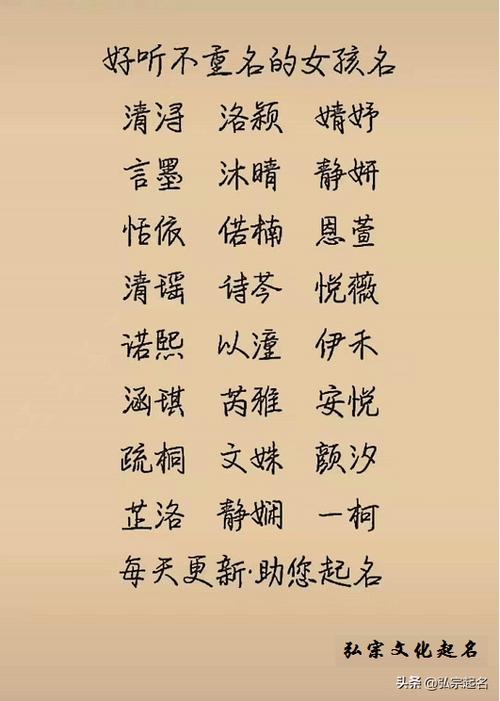 好听不重名的女孩名
清浔 洛颖 婧妤
言墨 沐晴 静妍
恬依 偌楠 恩萱
清瑶 诗芩 悦薇
诺熙 以潼 伊禾
涵琪 芮雅 安悦
疏桐 文姝 颜汐
芷洛 静娴 一柯
每天更新·助您起名
弘宗文化起名
头条@弘宗起名